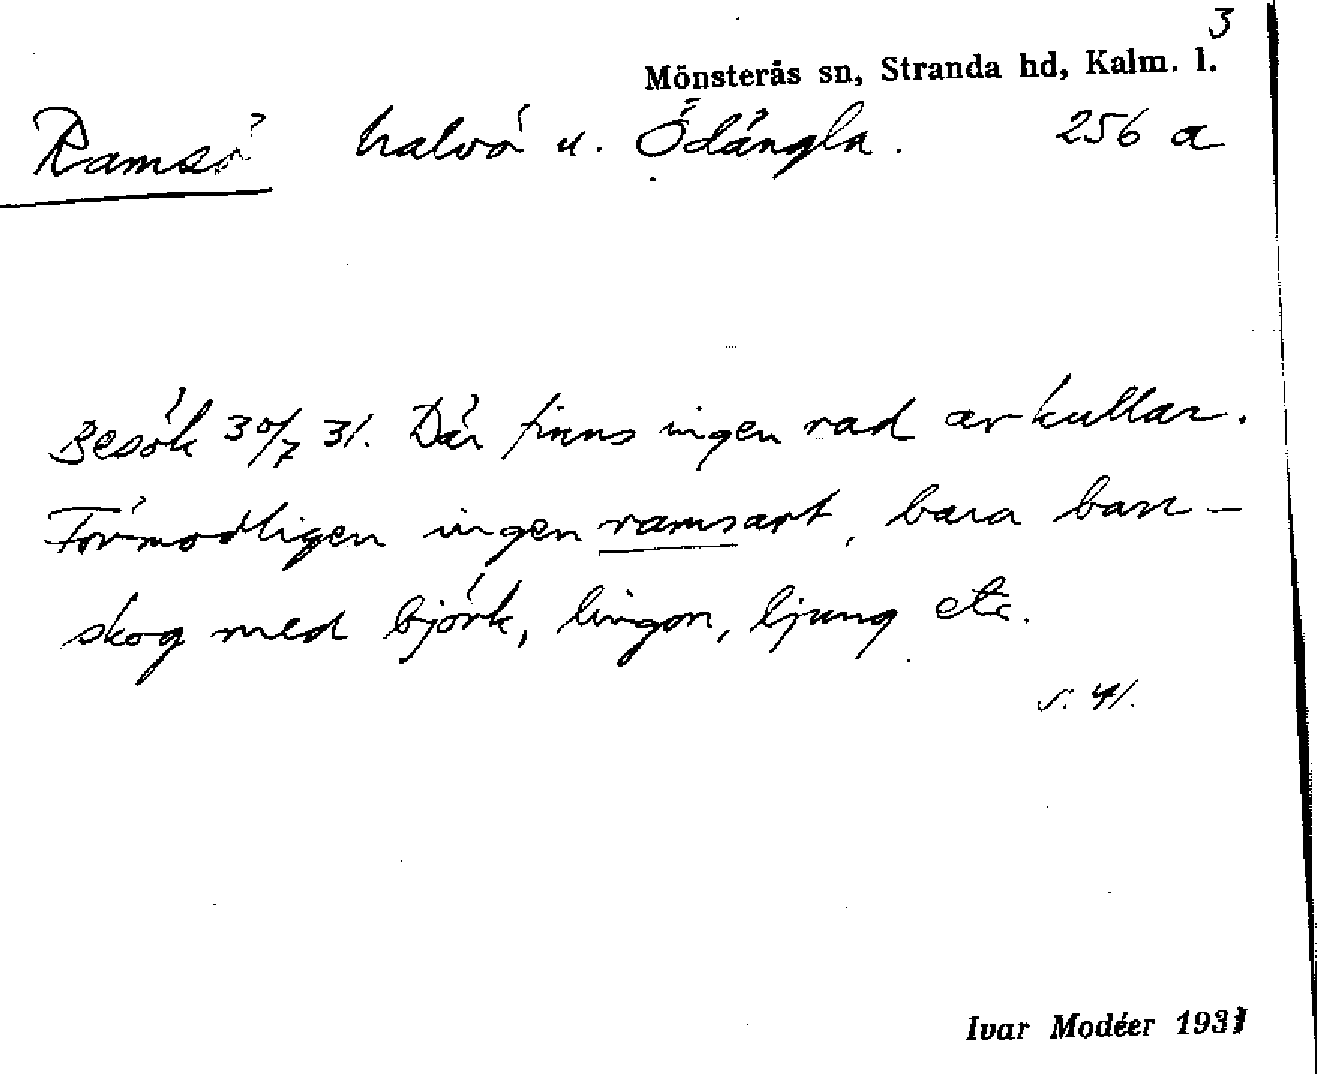 3
Mönsterås sn, Stranda hd, Kalm. l.
Ramsö halvö u. Ödängla. 256 a
Besök 30/7 31. Där finns ingen rad av kullar.
Förmodligen ingen ramsart, bara barr-
skog med björk, lingon, ljung etc.
s. 41.
Ivar Modéer 1931